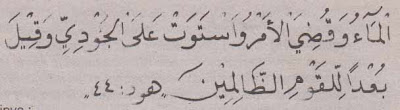 الْمَآءُ وَقُضِيَ الأَمْرُ وَاسْتَوَتْ عَلَى الْجُودِيِّ وَقِيلَ
بُعْدًا لِّلْقَوْمِ الظَّالِمِيْنَ ﴿هود: ٤٤﴾